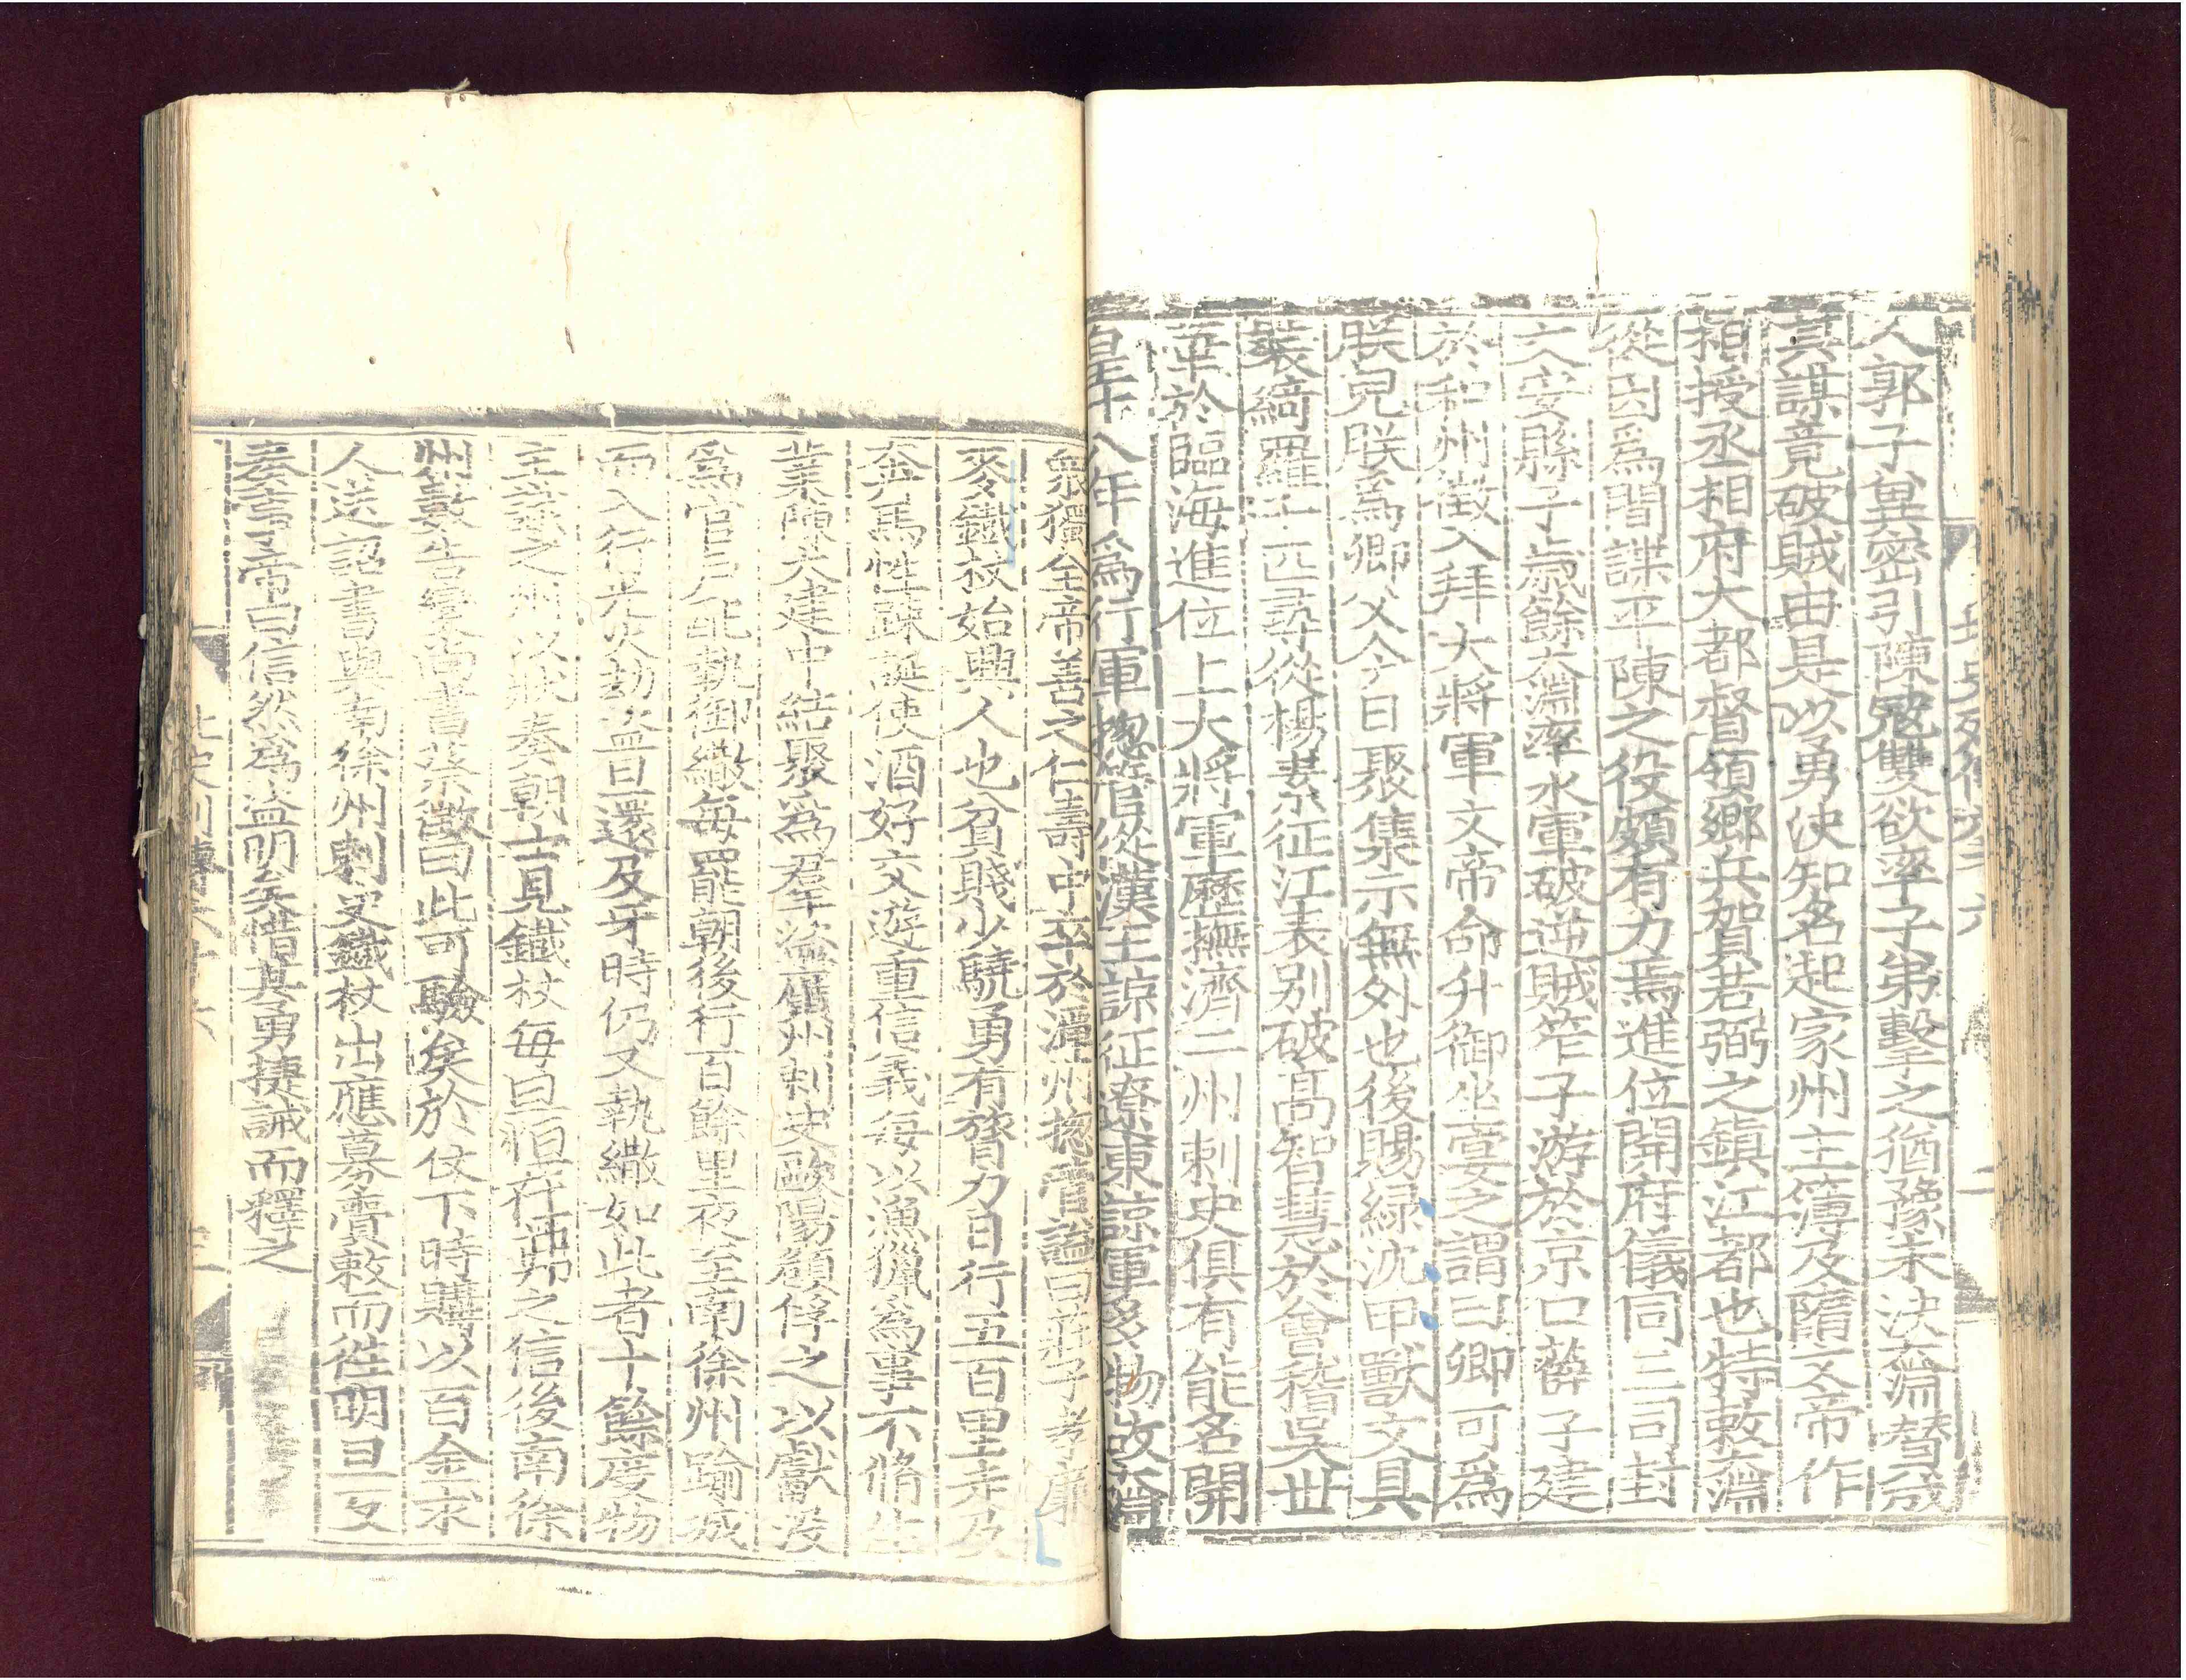 人郭子冀密引陳寇雙欲率子弟擊之猶豫未決淵替成
其謀竟破賊由是以勇決知名起家州主簿及隋文帝作
相授丞相府大都督領鄉兵賀若弼之鎮江都也特敕淵
從因爲間諜平陳之役頗有力焉進位開府儀同三司封
文安縣子歲餘淵率水軍破逆賊笮子游於京口薛子建
於和州徵入拜大將軍文帝命升御坐宴之謂曰卿可爲
朕兒朕爲卿父今日聚集示無外也後賜緑沈甲獸文具
裝綺羅千匹尋從楊素征江表别破高智慧於會稽吴世
華於臨海進位上大將軍歷撫濟二州刺史俱有能名開
皇十八年爲行軍揔管從漢王諒征遼東諒軍多物故淵
衆獨全帝善之仁壽中卒於潭州揔管謚曰莊子孝廉
麥鐵杖始興人也貧賤少驍勇有膂力日行五百里走及
奔馬性踈誕使酒好交遊重信義每以漁獵爲事不脩生
業陳大建中結聚爲羣盜廣州刺史歐陽頠俘之以獻没
爲官户配執御繖每罷朝後行百餘里夜至南徐州踰城
而入行光火劫盜旦還及牙時仍又執繖如此者十餘度物
主識之州以狀奏朝士見鐵杖每旦恒在弗之信後南徐
州數告變尚書蔡徵曰此可驗矣於仗下時購以百金求
人送詔書與南徐州刺史鐵杖出應募賫敕而往明旦反
奏事帝曰信然爲盜明矣惜其勇捷誡而釋之
北史列傳六十六